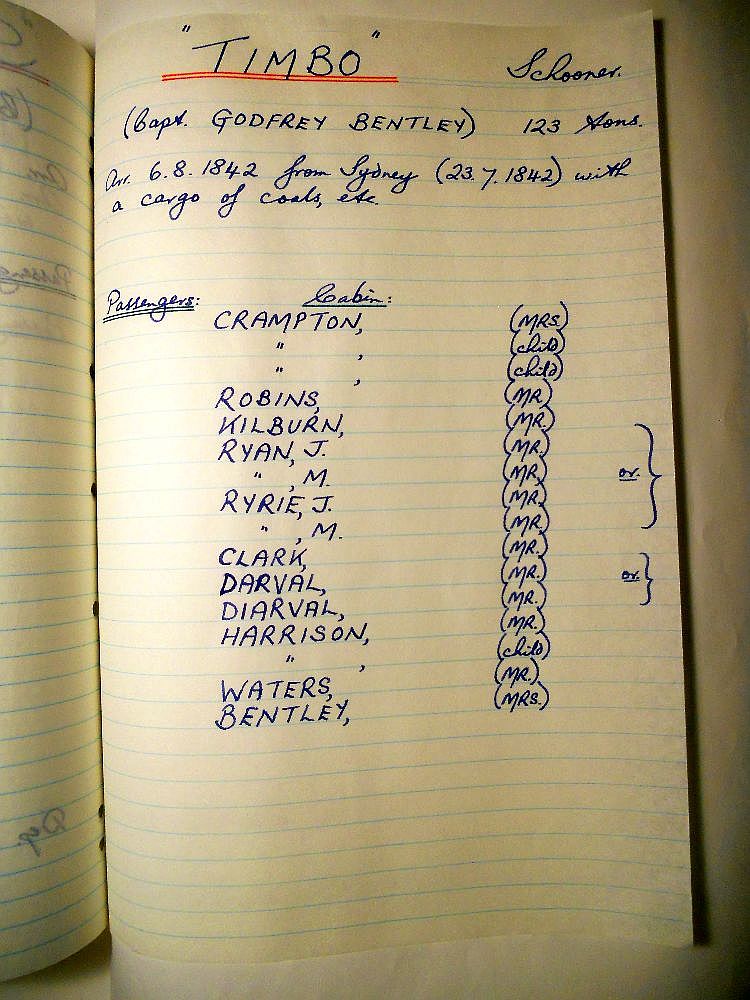 "TIMBO" Schooner.
(Capt. GODFREY BENTLEY) 123 tons.
Arr. 6.8.1842 from Sydney (23.7.1842) with
a cargo of coals, etc.
Passengers: Cabin:
CRAMPTON, (MRS.)
" , (child)
" , (child)
ROBINS, (MR.)
KILBURN, (MR.)
RYAN, J. (MR.)
" , M. (MR.)
RYRIE, J. (MR.) or.
" , M. (MR.)
CLARK, (MR.)
DARVAL, (MR.)
DIARVAL, (MR.) or.
HARRISON, (MR.)
" , (child)
WATERS, (MR.)
BENTLEY, (MRS.)
Dep.